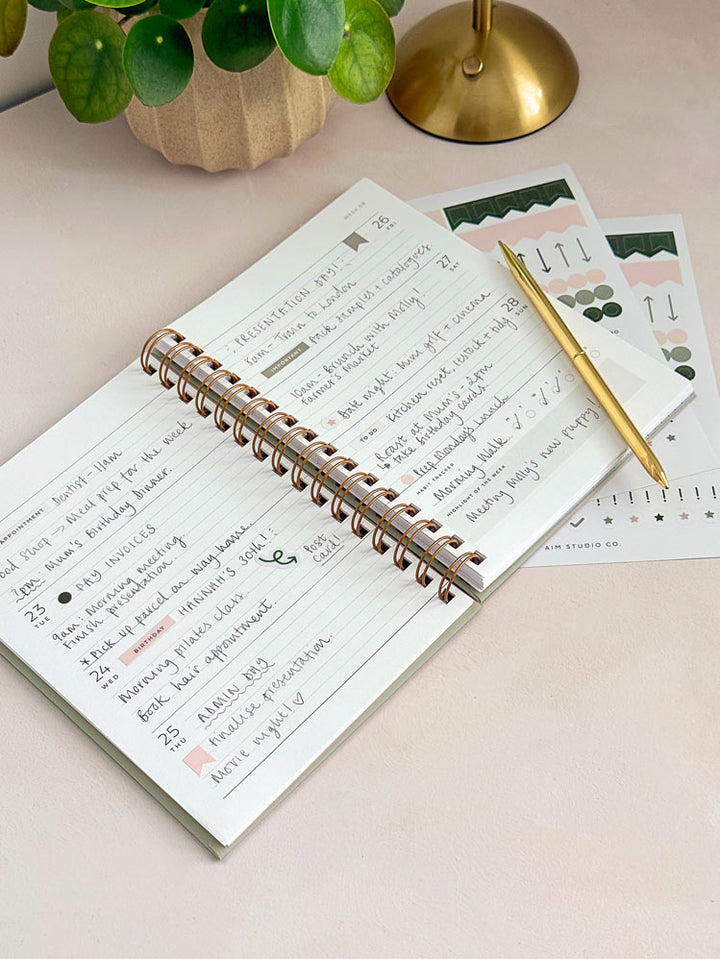 APPOINTMENT Dentist - 11am
Food shop → Meal prep for the week
2pm - Mum's Birthday Dinner.
23
TUE
PAY INVOICES
9am: Morning meeting
Finish presentation
* Pick up parcel on way home.
24
WED
BIRTHDAY HANNAH'S 30th!
Post
Card!
Morning pilates class
Book hair appointment
25
THU
ADMIN DAY
Finalise presentation.
Movie night! ♡
WEEK 08
26
FRI
PRESENTATION DAY!
8am - Train to London
IMPORTANT Pack samples + catalogues.
27
SAT
10am - Brunch with Molly!
Farmer's Market
Date night: Mini golf + cinema
28
SUN
TO DO Kitchen reset, restock + tidy
Roast at Mum's - 2pm
↳ take birthday cards
Prep Monday's lunch
HABIT TRACKER
Morning Walk
HIGHLIGHT OF THE WEEK
Meeting Molly's new puppy!
AIM STUDIO CO.